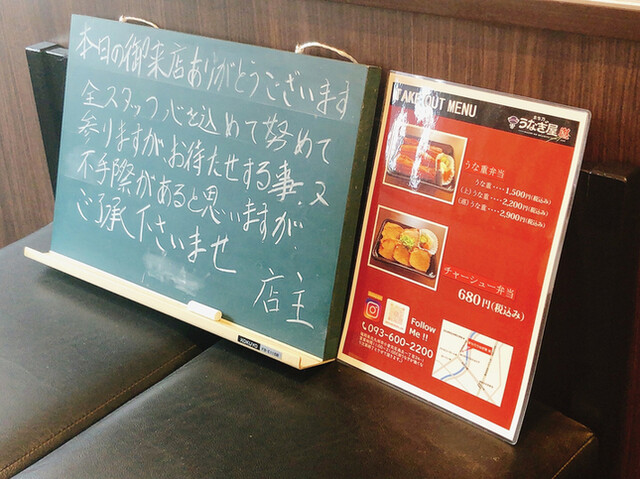 本日の御来店ありがとうございます
全スタッフ心を込めて努めて
参りますが、お待たせする事、又
不手際があると思いますが
ご了承下さいませ
店主
KOKUYO
TAKEOUT MENU
うなぎ屋
うな重弁当
うな重‥‥1,500円(税込み)
(上)うな重‥‥2,200円(税込み)
(選)うな重‥‥2,900円(税込み)
チャーシュー弁当
680円(税込み)
Follow
Me !!
093-600-2200